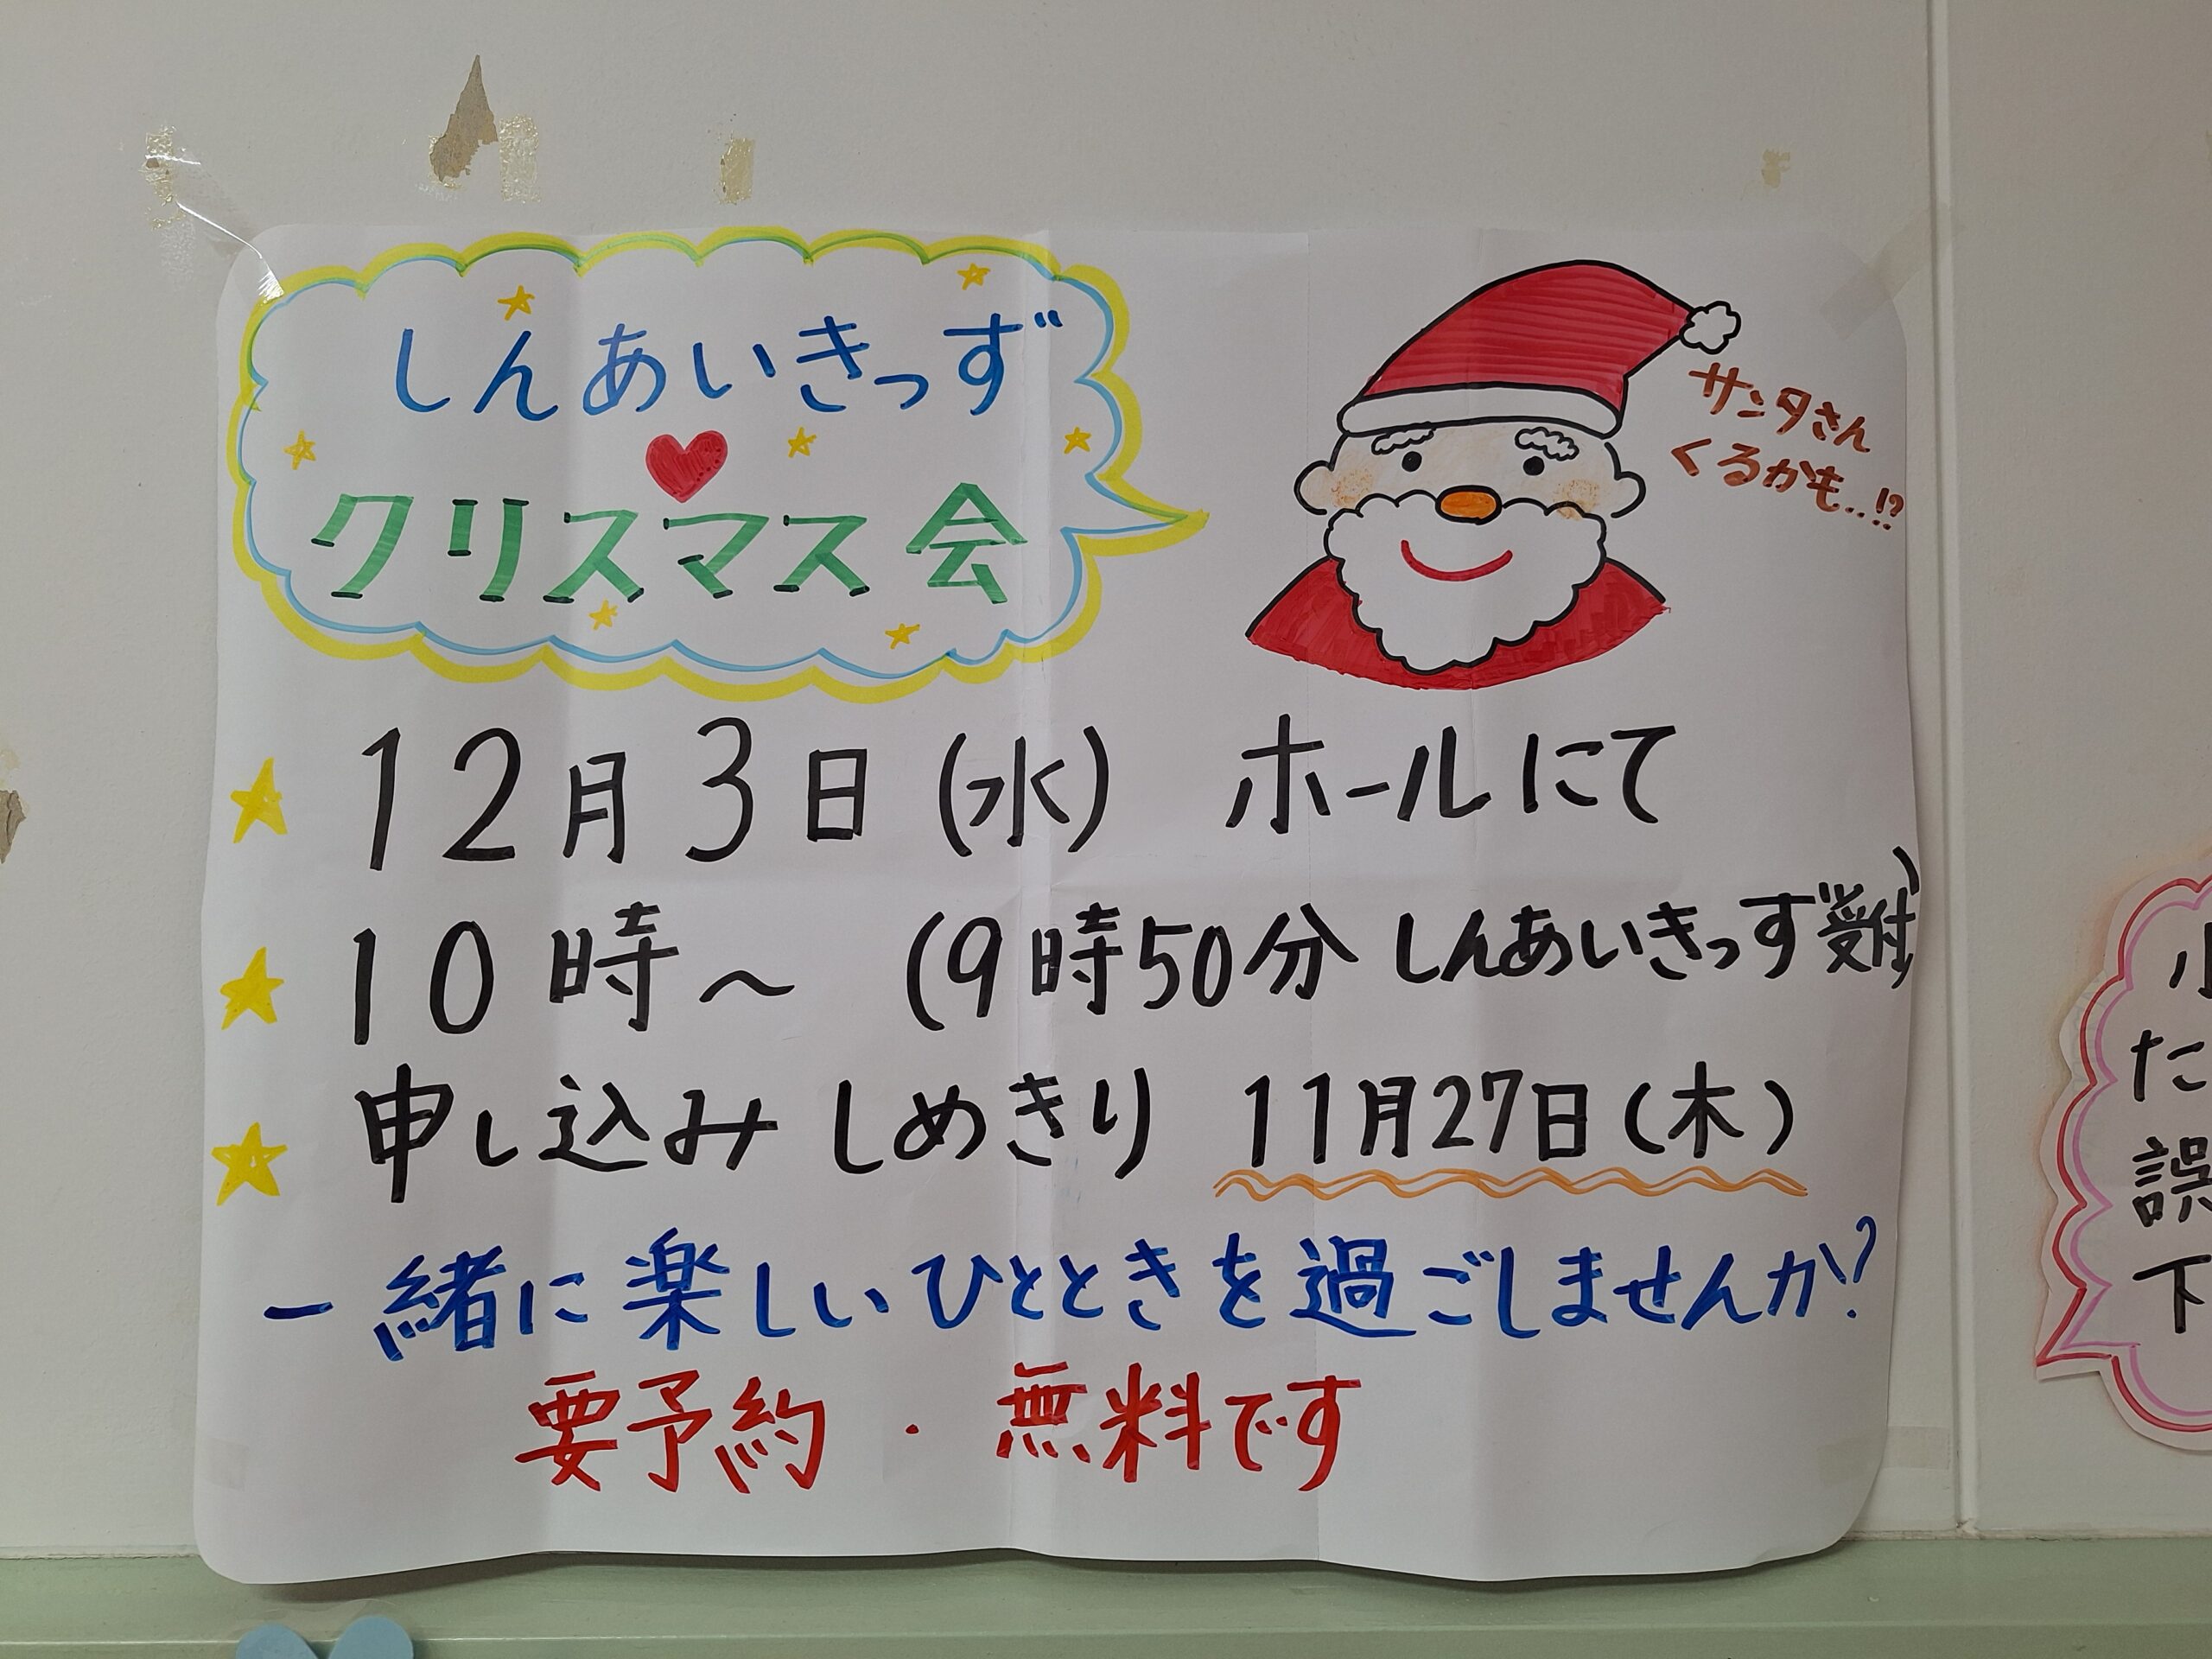 しんあいきっず
クリスマス会
サンタさん
くるかも…!?
12月3日(水) ホールにて
10時～ (9時50分 しんあいきっず受付)
申し込みしめきり 11月27日(木)
一緒に楽しいひとときを過ごしませんか?
要予約・無料です
た
誤
下